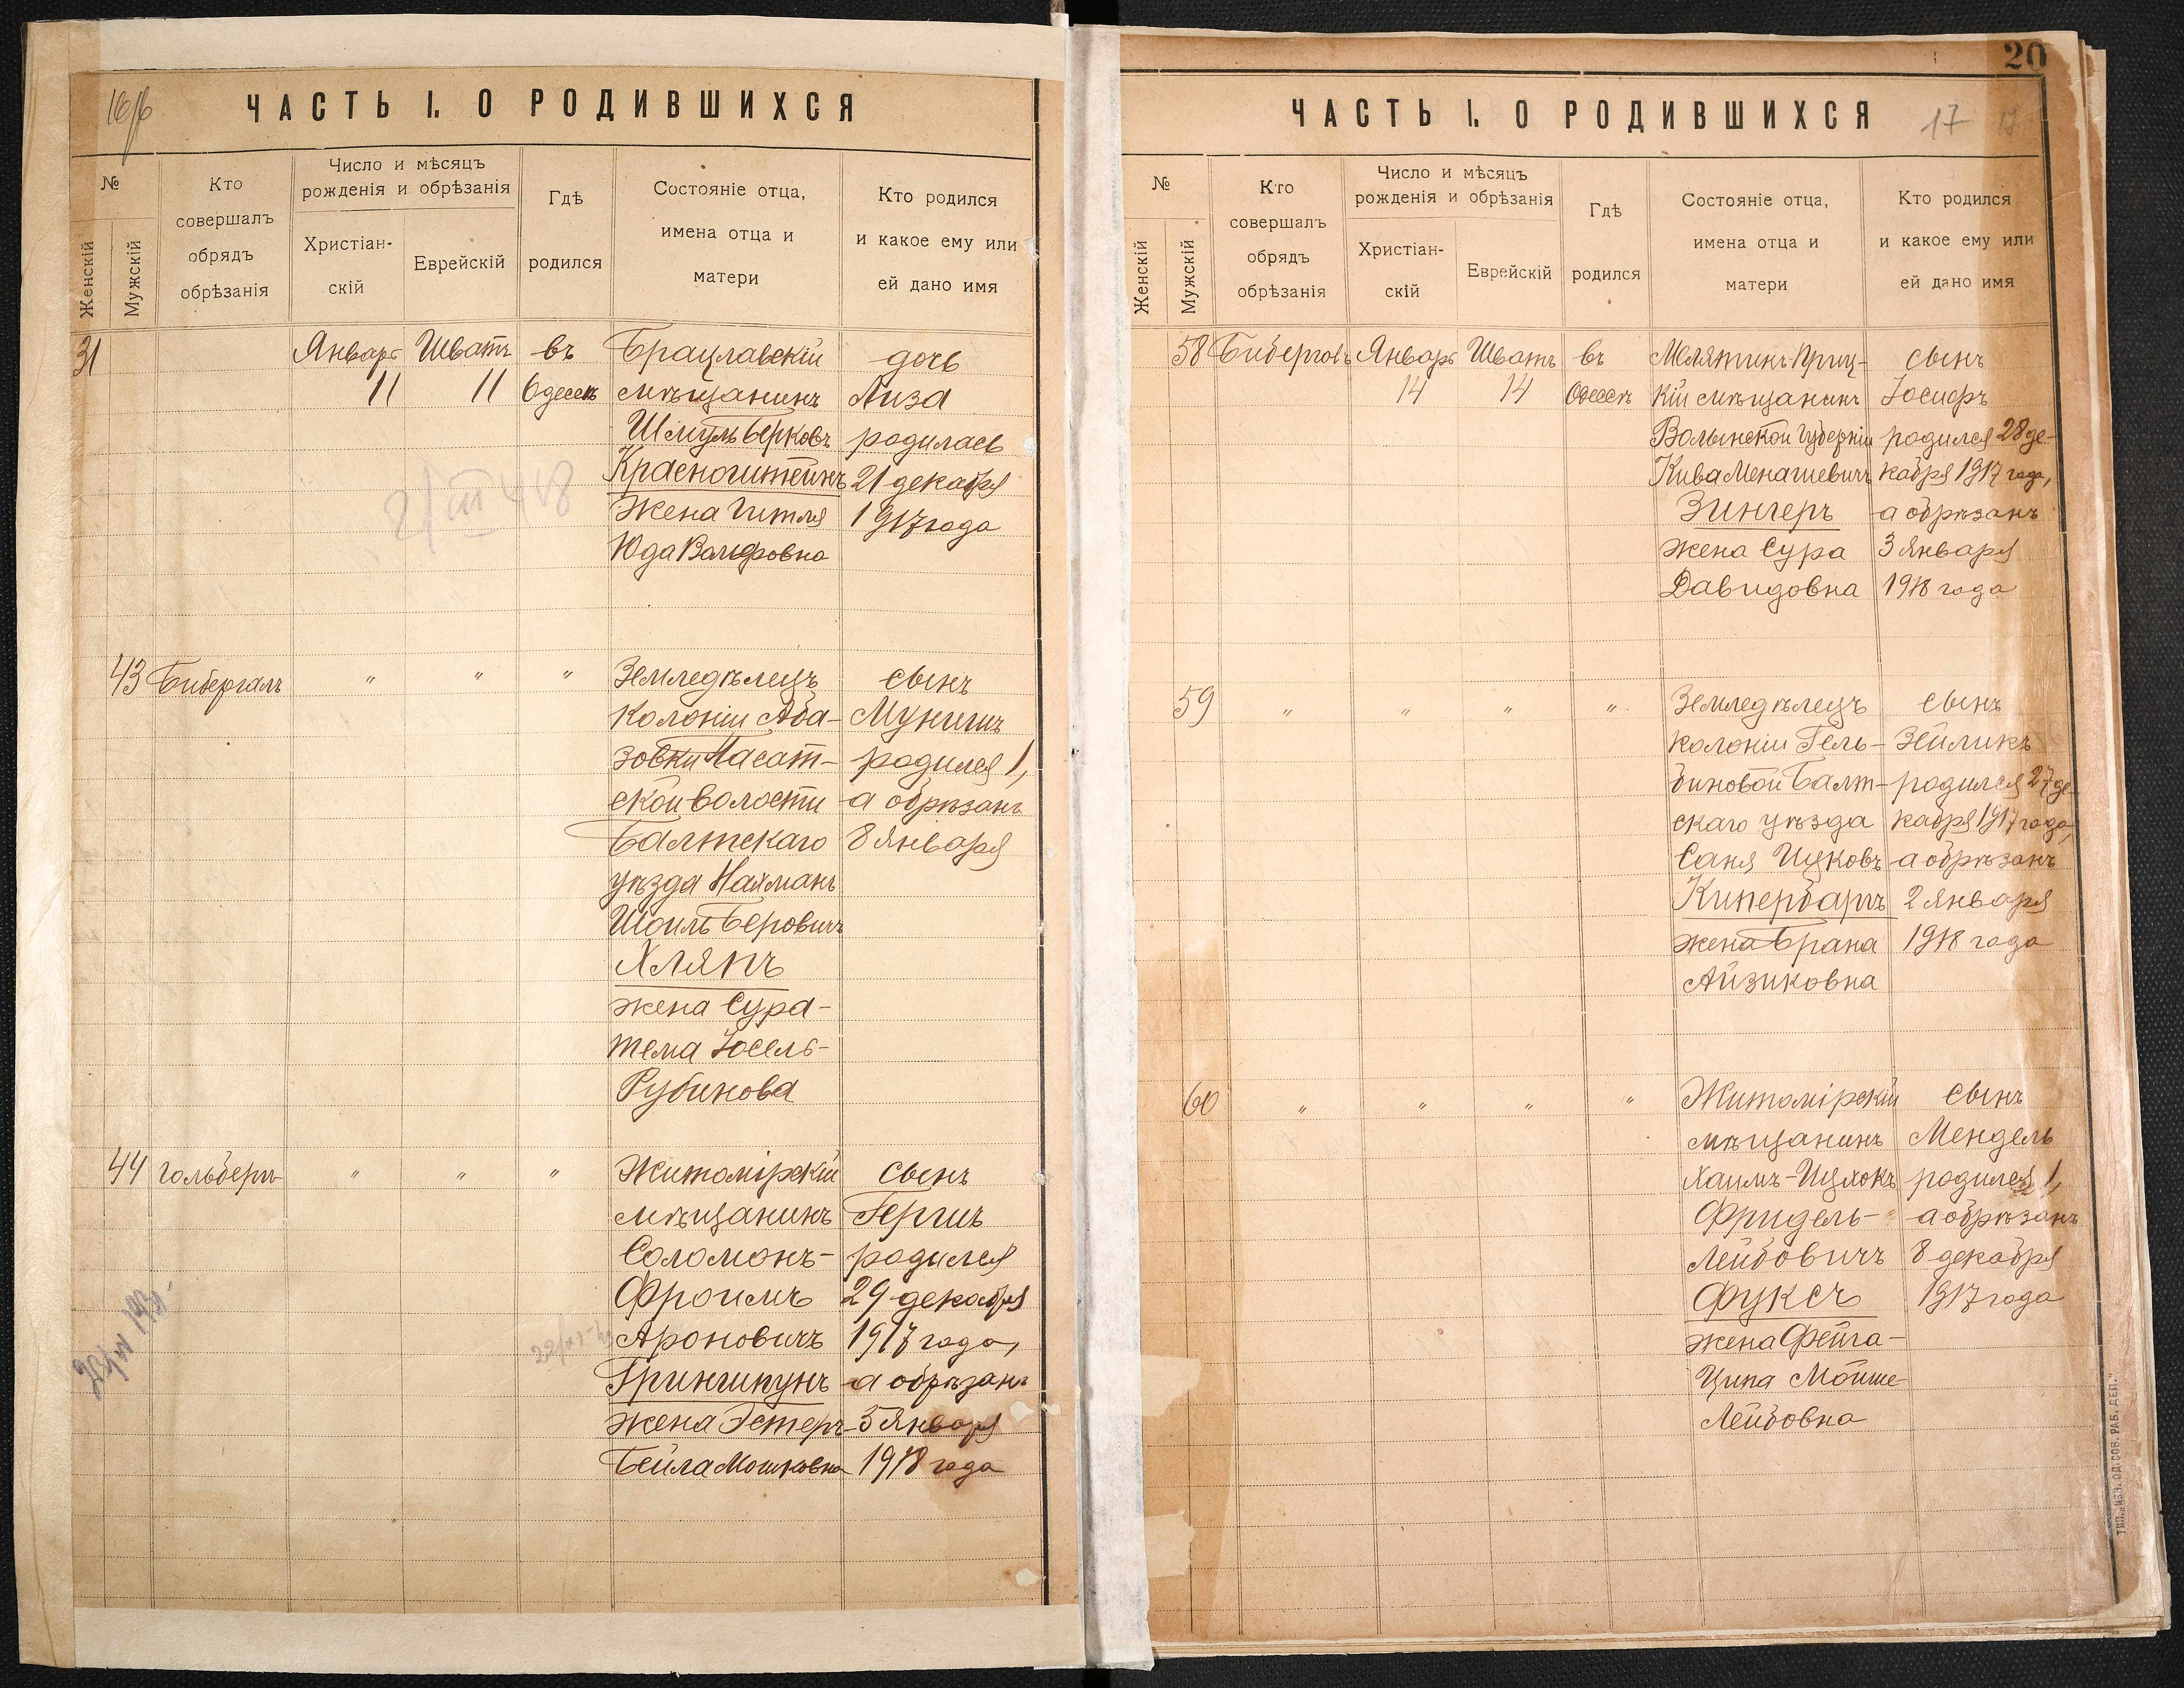 ЧАСТЬ I. О РОДИВШИХСЯ
№
Женскій
Мужскій
Кто
совершалъ
обрядъ
обрѣзанія
Число и мѣсяцъ
рожденія и обрѣзанія
Христіан-
скій
Еврейскій
Гдѣ
родился
Состояніе отца,
имена отца и
матери
Кто родился
и какое ему или
ей дано имя
31
Январь
11
Шватъ
11
въ
Одессѣ
Брацлавскій
мѣщанинъ
Шмуль Берковъ
Красноштейнъ
жена Гитля
Юда Вольфовна
дочь
Лиза
родилась
21 декабря
1917 года
43
Бибергалъ
"
"
"
Земледѣлецъ
колоніи Аба-
зовки Насат-
ской волости
Балтскаго
уѣзда Нахманъ
Шоиль Беровичъ
Хляпъ
жена Сура-
тема Іосель-
Рубинова
сынъ
Мунишъ
родился 1,
а обрѣзанъ
8 января
44
Гольберг
"
"
"
Житомірскій
мѣщанинъ
Соломонъ-
Фроимъ
Ароновичъ
Гриншпунъ
жена Эстеръ-
Бейла Мошковна
сынъ
Гершъ
родился
29 декабря
1917 года,
а обрѣзанъ
5 января
1918 года
20
ЧАСТЬ I. О РОДИВШИХСЯ
17
17
№
Женскій
Мужскій
Кто
совершалъ
обрядъ
обрѣзанія
Число и мѣсяцъ
рожденія и обрѣзанія
Христіан-
скій
Еврейскій
Гдѣ
родился
Состояніе отца,
имена отца и
матери
Кто родился
и какое ему или
ей дано имя
58
Январь
14
Шватъ
14
въ
Одессѣ
кій мѣщанинъ
Волынской губерніи
Кива Менашевичъ
Зингеръ
жена Сура
Давидовна
сынъ
Іосифъ
родился 28 де-
кабря 1917 года,
а обрѣзанъ
3 января
1918 года
59
"
"
"
"
Земледѣлецъ
колоніи Гель-
биновой Балт-
скаго уѣзда
Саня Ицковъ
Кипербаргъ
жена Брана
Айзиковна
сынъ
Зейликъ
родился 27 де-
кабря 1917 года,
а обрѣзанъ
2 января
1918 года
60
"
"
"
"
Житомірскій
мѣщанинъ
Хаимъ-Ицхокъ
Фридель-
Лейбовичъ
Фуксъ
жена Фейга-
Ципа Мойше-
Лейбовна
сынъ
Мендель
родился 1,
а обрѣзанъ
8 декабря
1917 года
ТИП. „ИЗВ. ОД. СОВ. РАБ. ДЕП."